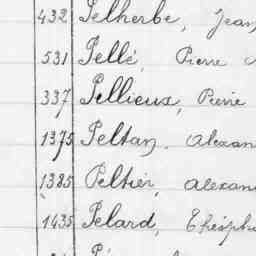 432 Pelherbe, Jean
531 Pellé, Pierre
337 Pellieux, Pierre
1375 Peltan, Alexan
1385 Peltier, Alexan
1435 Pelard, Théoph